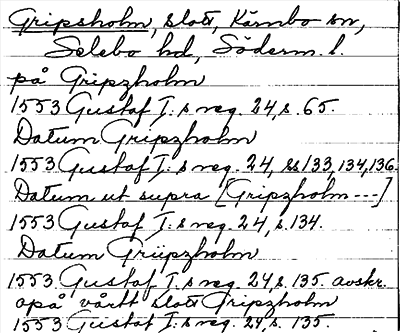 Gripsholm, slott, Kärnbo sn,
Selebo hd, Söderm. l.
på Gripzholm
1553 Gustaf I:s reg. 24, s. 65.
Datum Gripzholm
1553 Gustaf I:s reg. 24, ss 133, 134, 136.
Datum ut supra [Gripzholm ---]
1553 Gustaf I:s reg. 24, s. 134.
Datum Griipzholm
1553 Gustaf I:s reg. 24, s. 135. avskr.
opå vårtt slott Gripzholm
1553 Gustaf I:s reg. 24, s. 135.